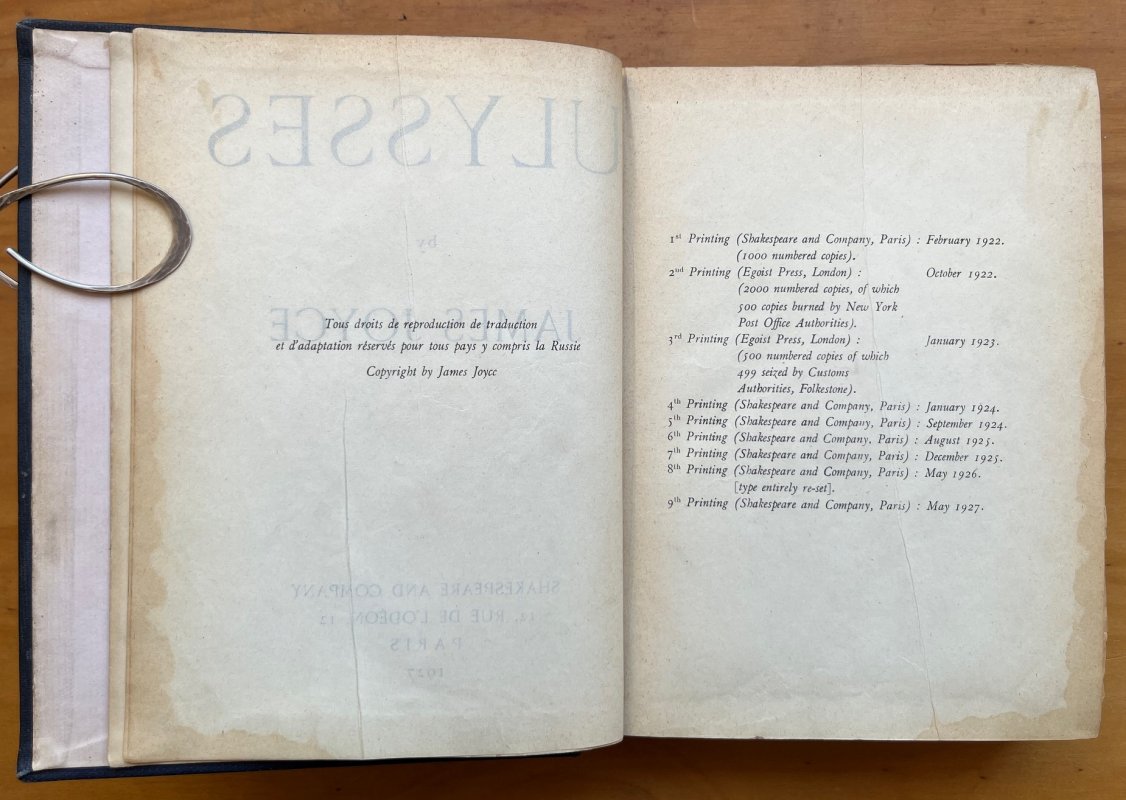 ULYSSES
by
JAMES JOYCE
Tous droits de reproduction de traduction
et d'adaptation réservés pour tous pays y compris la Russie
Copyright by James Joyce
SHAKESPEARE AND COMPANY
12, RUE DE L'ODÉON, 12
PARIS
1927
1st Printing (Shakespeare and Company, Paris) : February 1922.
(1000 numbered copies).
2nd Printing (Egoist Press, London) : October 1922.
(2000 numbered copies, of which
500 copies burned by New York
Post Office Authorities).
3rd Printing (Egoist Press, London) : January 1923.
(500 numbered copies of which
499 seized by Customs
Authorities, Folkestone).
4th Printing (Shakespeare and Company, Paris) : January 1924.
5th Printing (Shakespeare and Company, Paris) : September 1924.
6th Printing (Shakespeare and Company, Paris) : August 1925.
7th Printing (Shakespeare and Company, Paris) : December 1925.
8th Printing (Shakespeare and Company, Paris) : May 1926.
[type entirely re-set].
9th Printing (Shakespeare and Company, Paris) : May 1927.